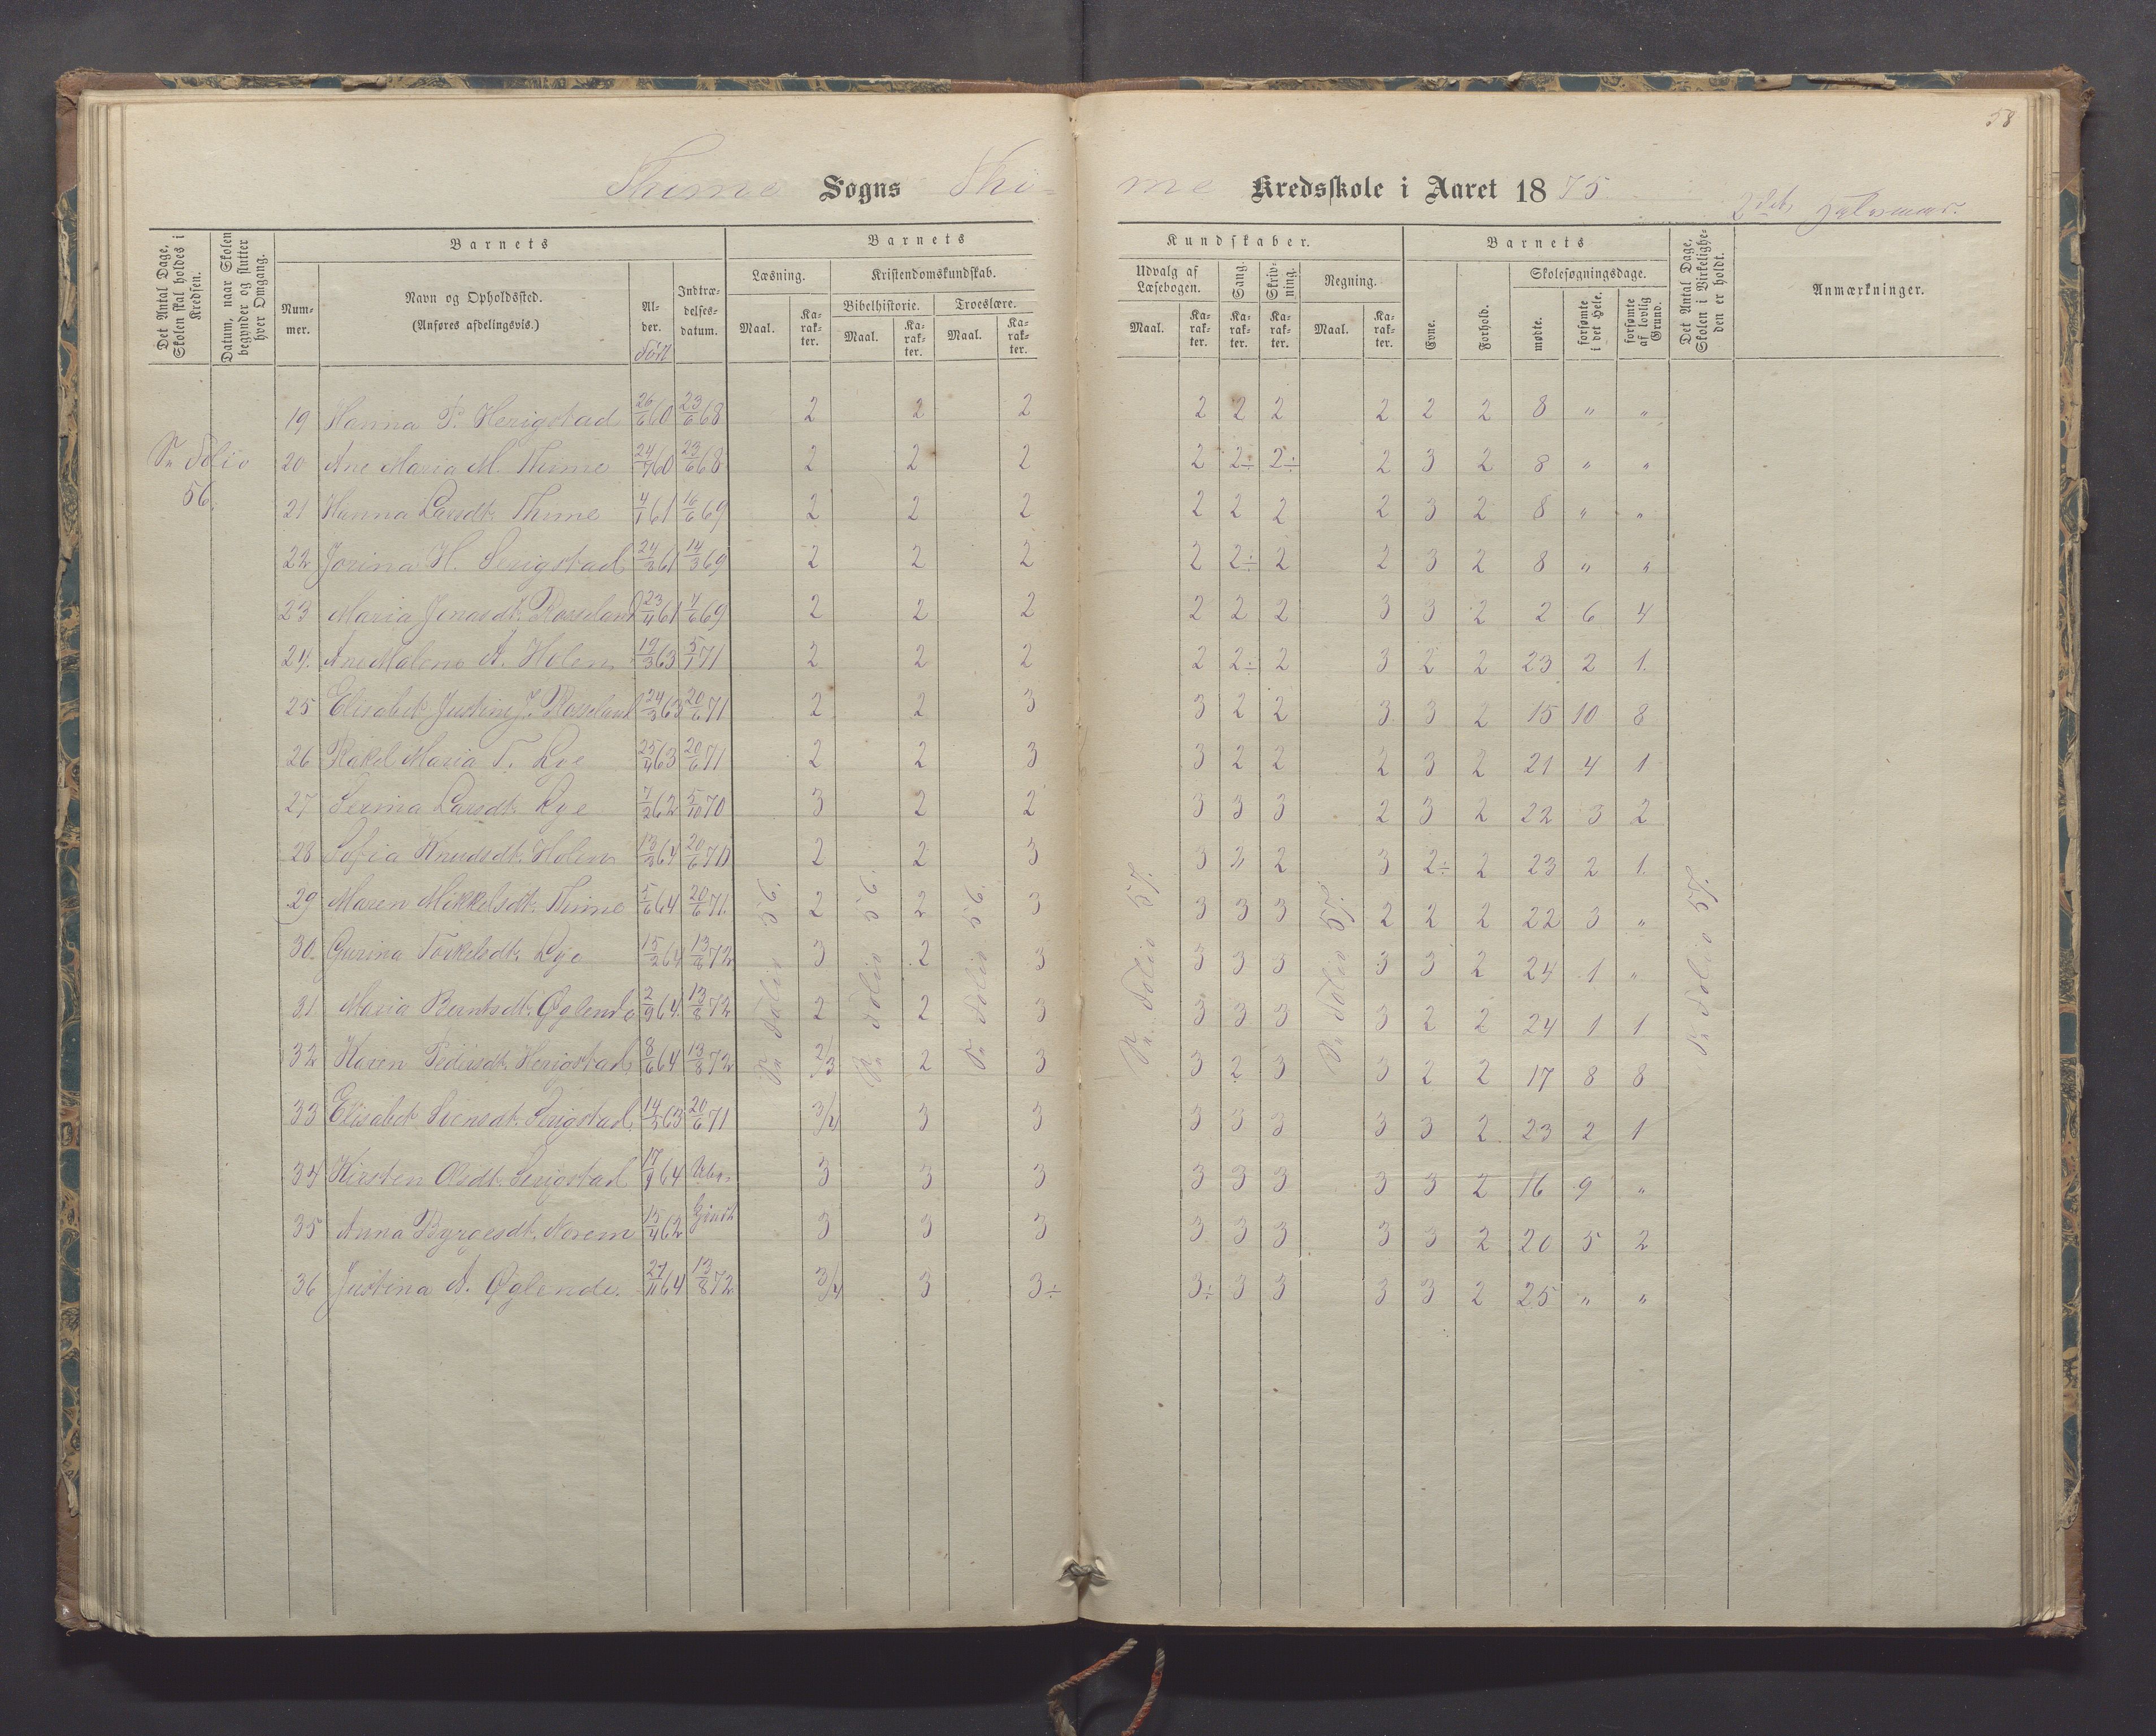 58
Thime Sogns Thi-
me Kredsskole i Aaret 1875.
2det
Det Antal Dage, Skolen skal holdes i Kredsen.
Datum, naar Skolen begynder og slutter hver Omgang.
Barnets
Nummer.
Navn og Opholdssted.
(Anføres afdelingsvis.)
Alder.
Født
Indtrædelsesdatum.
Barnets
Læsning.
Maal.
Karakter.
Kristendomskundskab.
Bibelhistorie.
Maal.
Karakter.
Troeslære.
Maal.
Karakter.
Kundskaber.
Udvalg af Læsebogen.
Maal.
Karakter.
Sang.
Karakter.
Skrivning.
Karakter.
Regning.
Maal.
Karakter.
Barnets
Evne.
Forhold.
Skolesøgningsdage.
mødte.
forsømte i det Hele.
forsømte af lovlig Grund.
Det Antal Dage, Skolen i Virkeligheden er holdt.
Anmærkninger.
Se Folio
56.
19 Hanna P. Herigstad 26/6 60 23/6 68 2 2 2 2 2 2 2 2 2 8 " "
20 Ane Maria M. Thime 24/7 60 23/6 68 2 2 2 2 2÷ 2÷ 2 3 2 8 " "
21 Hanna Larsdt. Thime 4/1 61 16/6 69 2 2 2 2 2 2 2 3 2 8 " "
22 Jorina H. Serigstad 24/3 61 14/3 69 2 2 2 2 2÷ 2 2 3 2 8 " "
23 Maria Jonasdt. Rosseland 23/4 61 4/6 69 2 2 2 2 2 2 3 3 2 2 6 4
24. Ane Malene A. Holen 19/3 63 5/1 71 2 2 2 2 2÷ 2 3 2 2 23 2 1.
25 Elisabet Justine J. Rosseland 24/3 63 20/6 71 2 2 3 3 2 2 3 3 2 15 10 8
26 Rakel Maria T. Lye 25/4 63 20/6 71 2 2 3 3 2 2 2 3 2 21 4 1
27 Serina Larsdt. Lye 7/2 62 5/10 70 3 2 2 3 3 3 2 3 2 22 3 2
28 Sofia Knudsdt. Holen 13/3 64 20/6 71 2 2 3 3 2 2 3 2÷ 2 23 2 1.
29 Maren Mikkelsdt. Thime 5/6 64 20/6 71. 2 2 3 3 3 3 2 2 2 22 3 "
30. Gurina Torkelsdt. Lye 15/2 64 13/8 72 3 2 3 3 3 3 3 3 2 24 1 "
31 Maria Berntsdt. Øglende 2/9 64. 13/8 72 2 2 3 3 3 3 3 2 2 24 1 1
32 Karen Pedersdt. Herigstad 8/6 64 13/8 72 2/3 2 3 3 2 3 3 2 2 17 8 8
33 Elisabet Svensdt. Serigstad 14/5 63 20/6 71 3/4 3 3 3 3 3 3 3 2 23 2 1
34 Kirsten Olsdt. Serigstad 17/9 64 3 3 3 3 3 3 3 3 2 16 9 "
35 Anna Byrgesdt. Norem 15/4 62 3 3 3 3 3 3 3 3 2 20 5 2
36 Justina A. Øglende. 27/11 64 13/8 72 3/4 3 3÷ 3÷ 3 3 3 3 2 25 " "
Se Folio 56.
Se Folio 56.
Se Folio 56.
Se Folio 57.
Se Folio 57.
Se Folio 57.